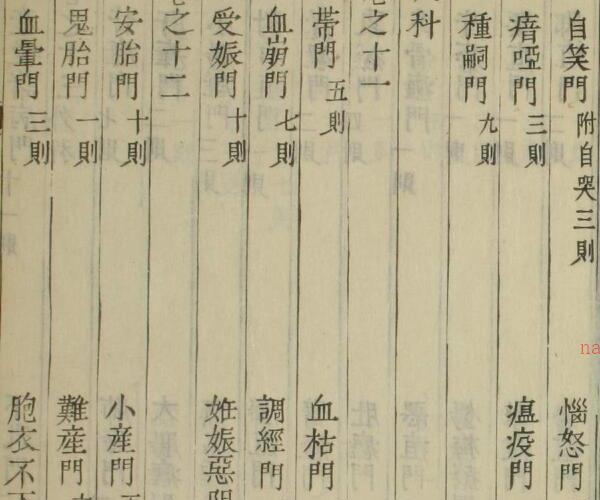 自笑門 附自哭三則 惱怒門
瘖啞門 三則 瘟疫門
種嗣門 九則
科
之十一
帯門 五則 血枯門
血崩門 七則 調經門
受娠門 十則 妊娠惡
之十二
安胎門 十則 小産門
鬼胎門 一則 難産門
血暈門 三則 胞衣不
na